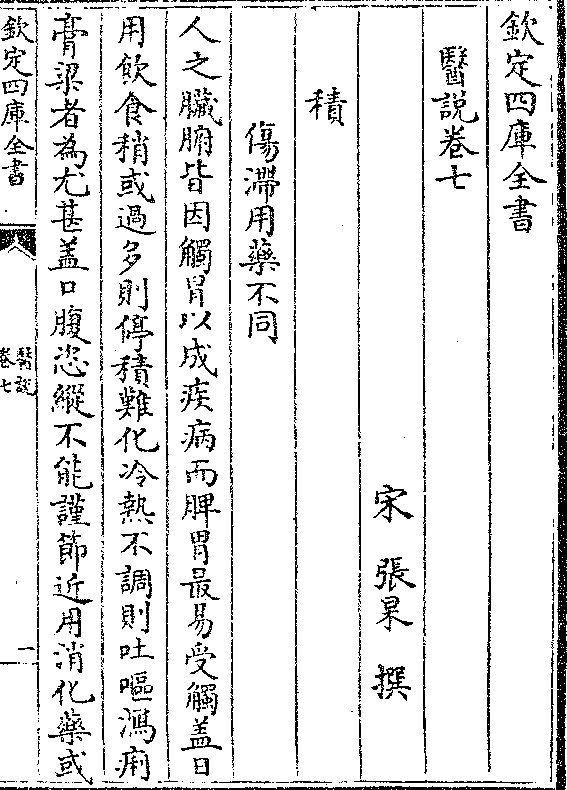 欽定四庫全書
醫説卷七
宋 張杲 撰
積
傷滯用藥不同
人之臟腑皆因觸冒以成疾病而脾胃最易受觸蓋日
用飲食稍或過多則停積難化冷熱不調則吐嘔瀉痢
膏粱者為尤甚蓋口腹恣縱不能謹節近用消化藥或
欽定四庫全書
醫説
卷七
一